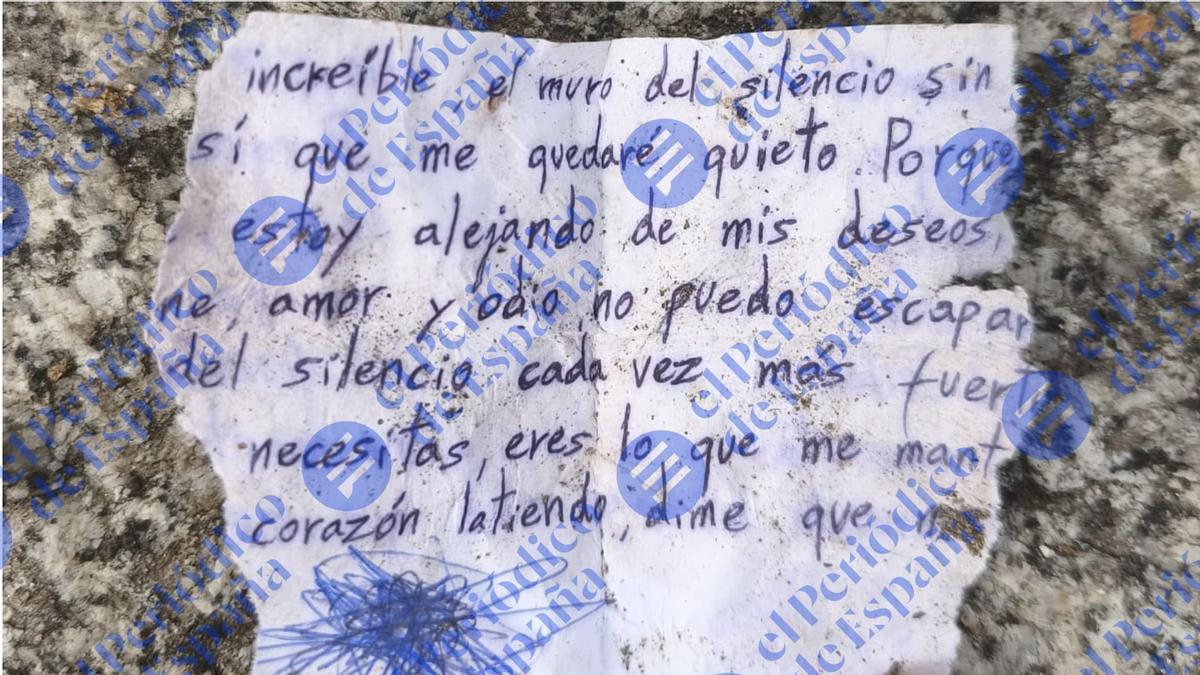 increíble, el muro del silencio sin
sí que me quedaré quieto. Porque
estoy alejando de mis deseos,
ne, amor y odio, no puedo escapar
del silencio cada vez mas fuert
necesitas, eres lo que me mant
corazón latiendo, dime que
el Periódico
de España